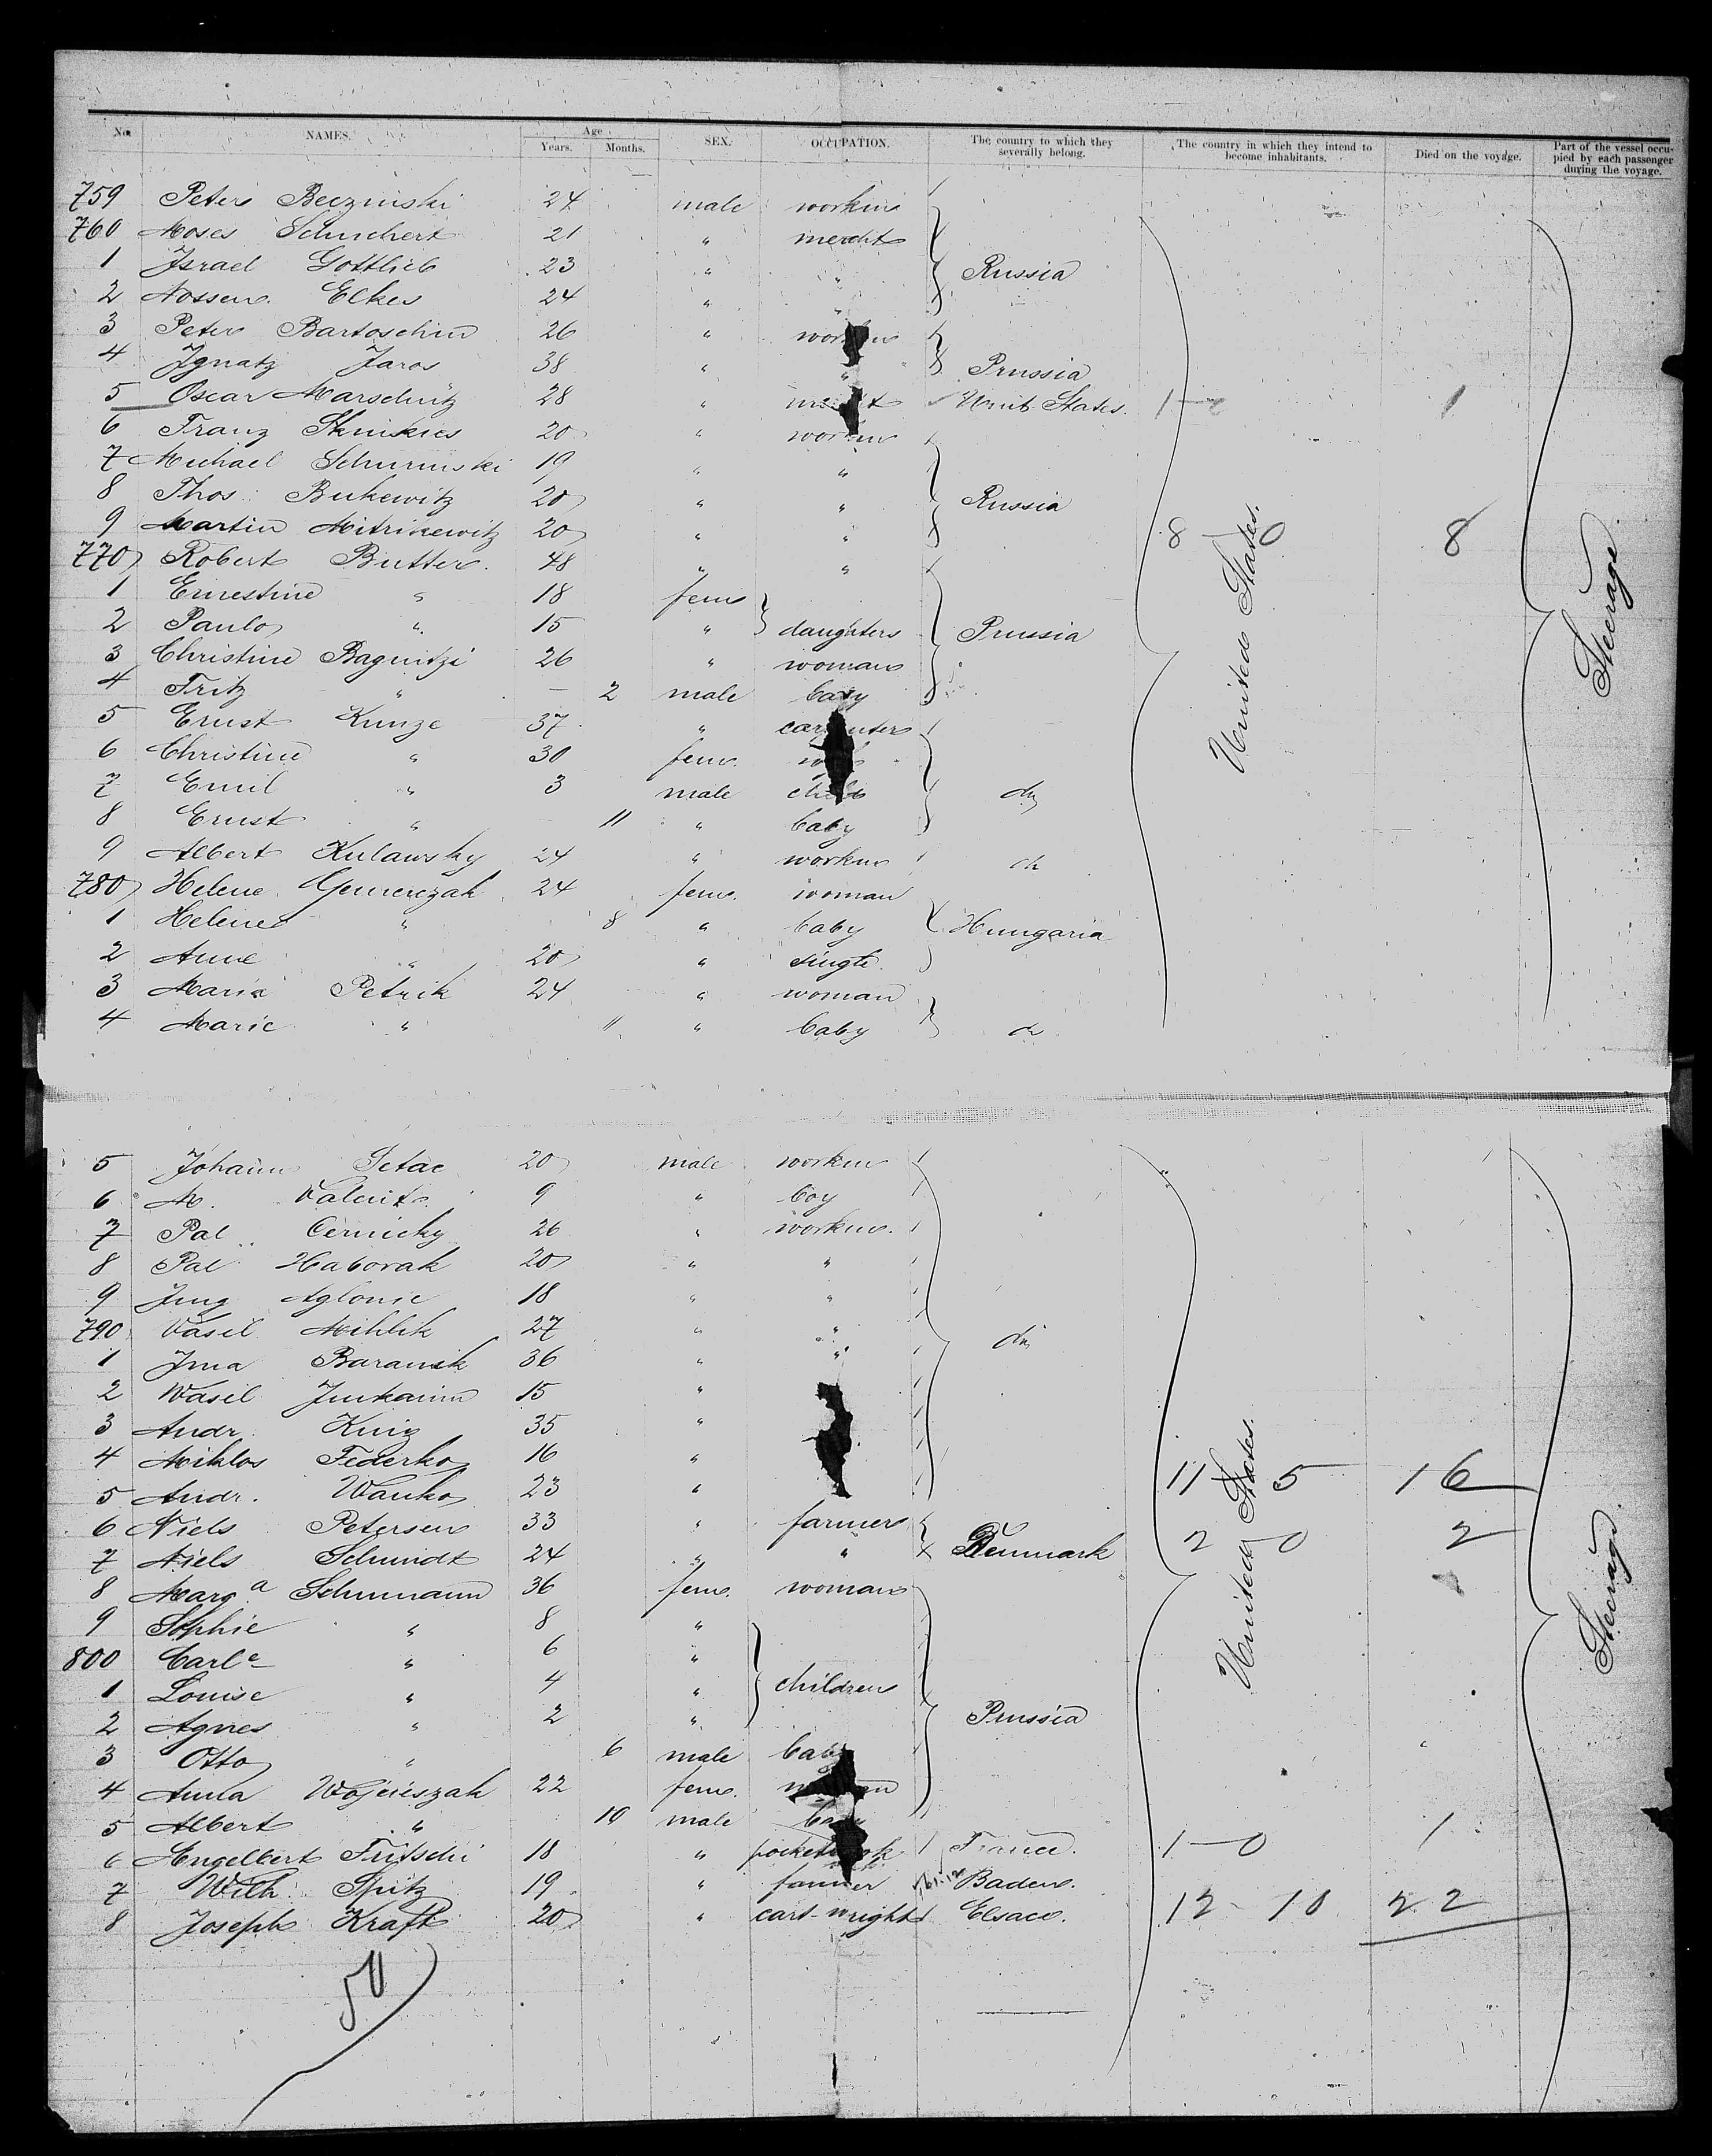 No. NAMES. Age Years. Months. SEX. OCCUPATION. The country to which they severally belong. The country in which they intend to become inhabitants. Died on the voyage. Part of the vessel occupied by each passenger during the voyage.
759 Peter Beczinski 24 male workm
760 Moses Schuchert 21 " mercht
1 Israel Gottlieb 23 " " Russia
2 Nossen Elkes 24 " "
3 Peter Bartoschin 26 "
4 Ignatz Jaros 38 " " Prussia
5 Oscar Marschütz 28 " Unit. States. 1 1
6 Franz 20 " workm
7 Michael 19 " "
8 Thos. Bukewitz 20 " " Russia
9 Martin Mitrikewitz 20 " " 8 0 8
770 Robert Butter 48 " "
1 Ernestine " 18 fem
2 Paula " 15 " daughters Prussia
3 Christine Bagnitzi 26 " woman
4 Fritz " — 2 male baby
5 Ernst Kunze 37 " carpenter
6 Christine " 30 fem. wife
7 Emil " 3 male child do
8 Ernst " 11 " baby
9 Albert Kulawsky 24 " workm do
780 Helene 24 fem. woman
1 Helene " 8 " baby Hungaria
2 Anne " 20 " single
3 Maria Petrik 24 " woman
4 Marie " 11 " baby do
United States.
Steerage
5 Johann Setac 20 male workm
6 M. Valent 9 " boy
7 Pal Cernicky 26 " workm.
8 Pal Haborak 20 " "
9 18 " "
790 Vasil Mihlik 27 " " do
1 Baranik 36 " "
2 Wasil 15 "
3 Andr. 35 "
4 Miklos Federko 16 " 11 5 16
5 Andr. Wanko 23 "
6 Niels Petersen 33 " farmer 2 0 2
7 Niels Schmidt 24 " " Denmark
8 Marga Schumann 36 fem. woman
9 Sophie " 8 "
800 Carle " 6 "
1 Louise " 4 " children
2 Agnes " 2 " Prussia
3 Otto " 6 male baby
4 Anna Wojcieszak 22 fem. woman
5 Albert " 10 male baby
6 Engelbert Fritschi 18 " France. 1 — 0 1
7 Wilh. Spitz 19 " farmer Baden.
8 Joseph Kraft 20 " cart-wright Elsace. 12 - 10 22
United States.
Steerage
50